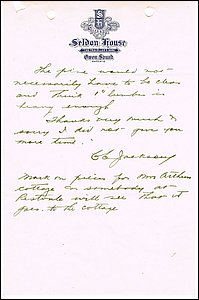 Seldon House
Owen Sound
The pine would not
necessarily have to be clear
and think 1" lumber is
heavy enough
Thanks very much &
sorry I did not give you
more time.
Mark on prices for Mrs Arthurs
cottage on somebody at
will see that it
goes to the cottage